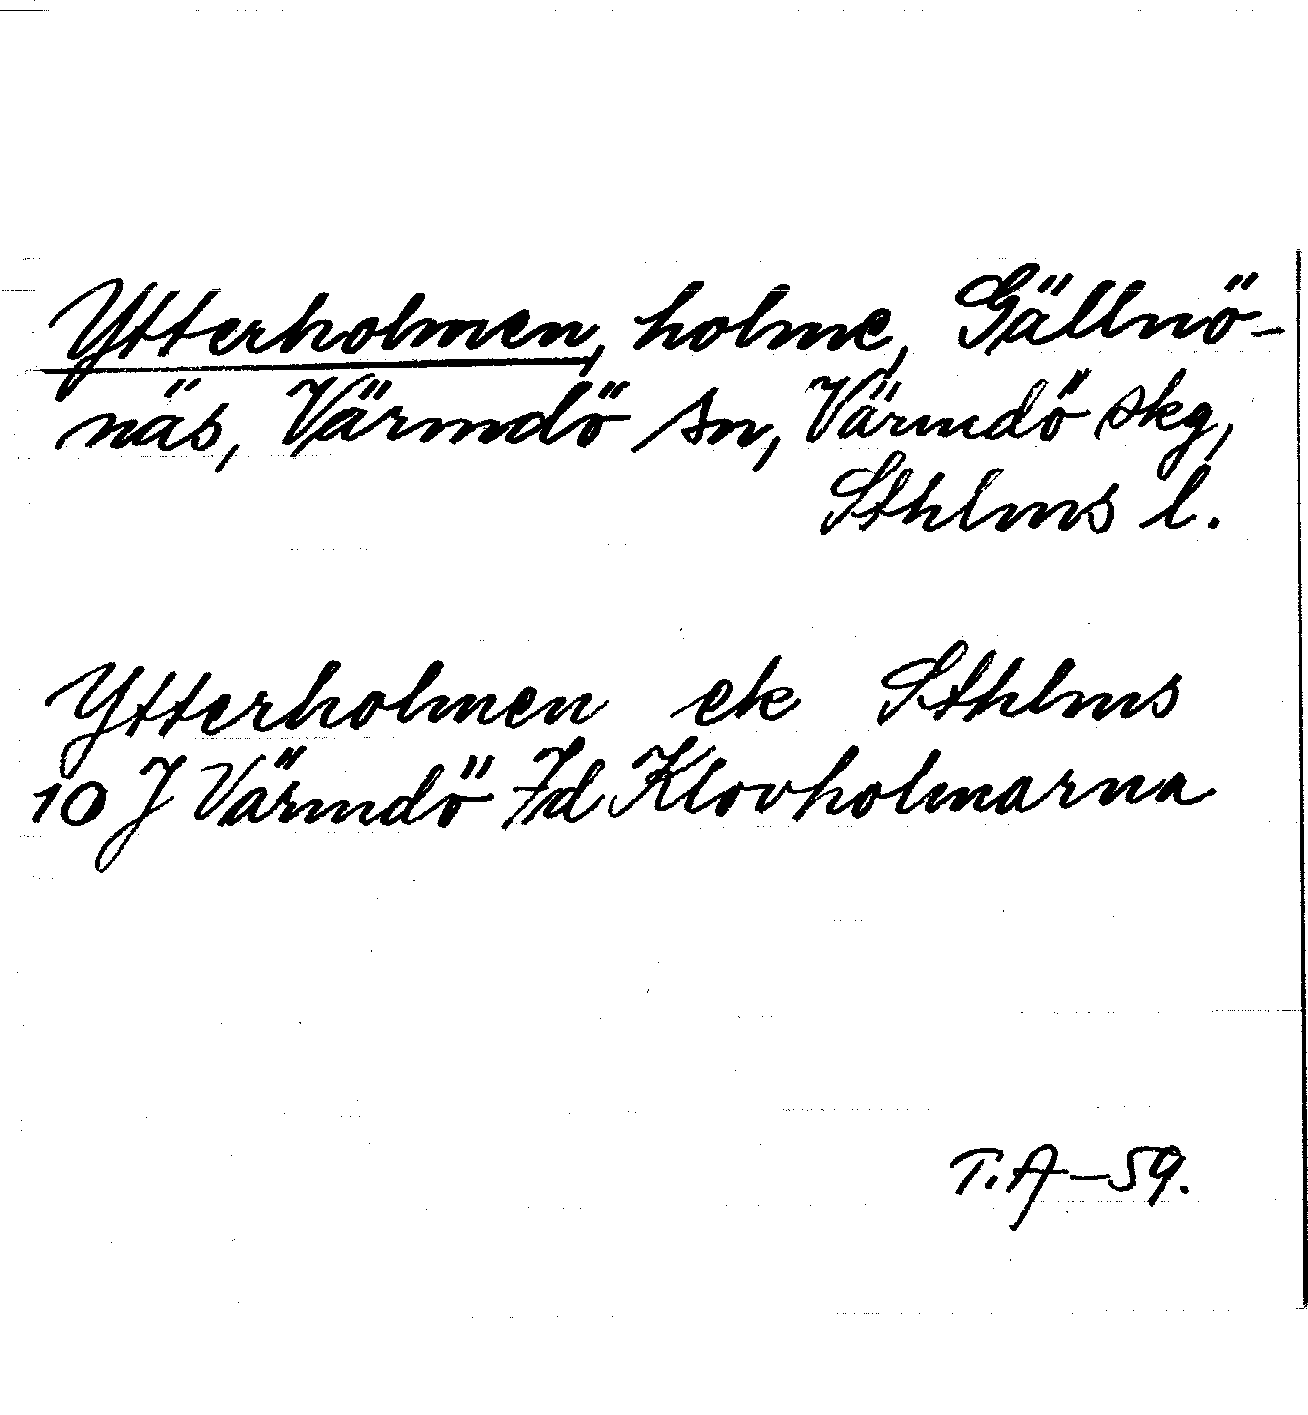 Ytterholmen, holme, Gällnö-
näs, Värmdö sn, Värmdö skg,
Sthlms l.
Ytterholmen ek Sthlms
10 J Värmdö Fd Klovholmarna
T.A–59.